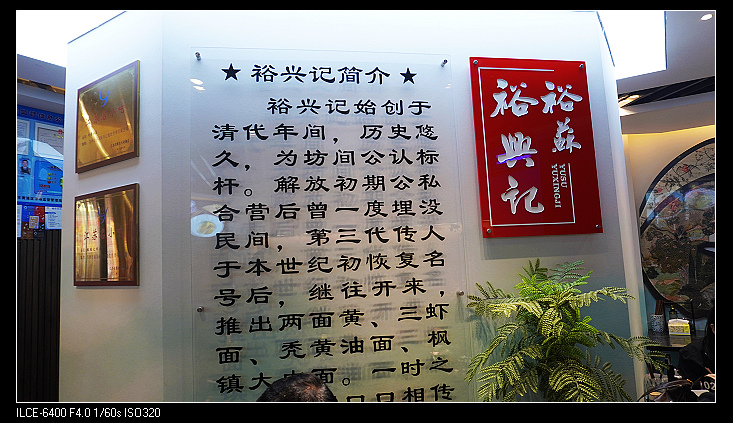 ★裕兴记简介★
裕兴记始创于
清代年间，历史悠
久，为坊间公认标
杆。解放初期公私
合营后曾一度埋没
民间，第三代传人
于本世纪初恢复名
号后，继往开来，
推出两面黄、三虾
面、秃黄油面、枫
镇大肉面。一时之
口口相传
裕蘇
裕興记
YUSU
YUXINGJI
ILCE-6400 F4.0 1/60s ISO320